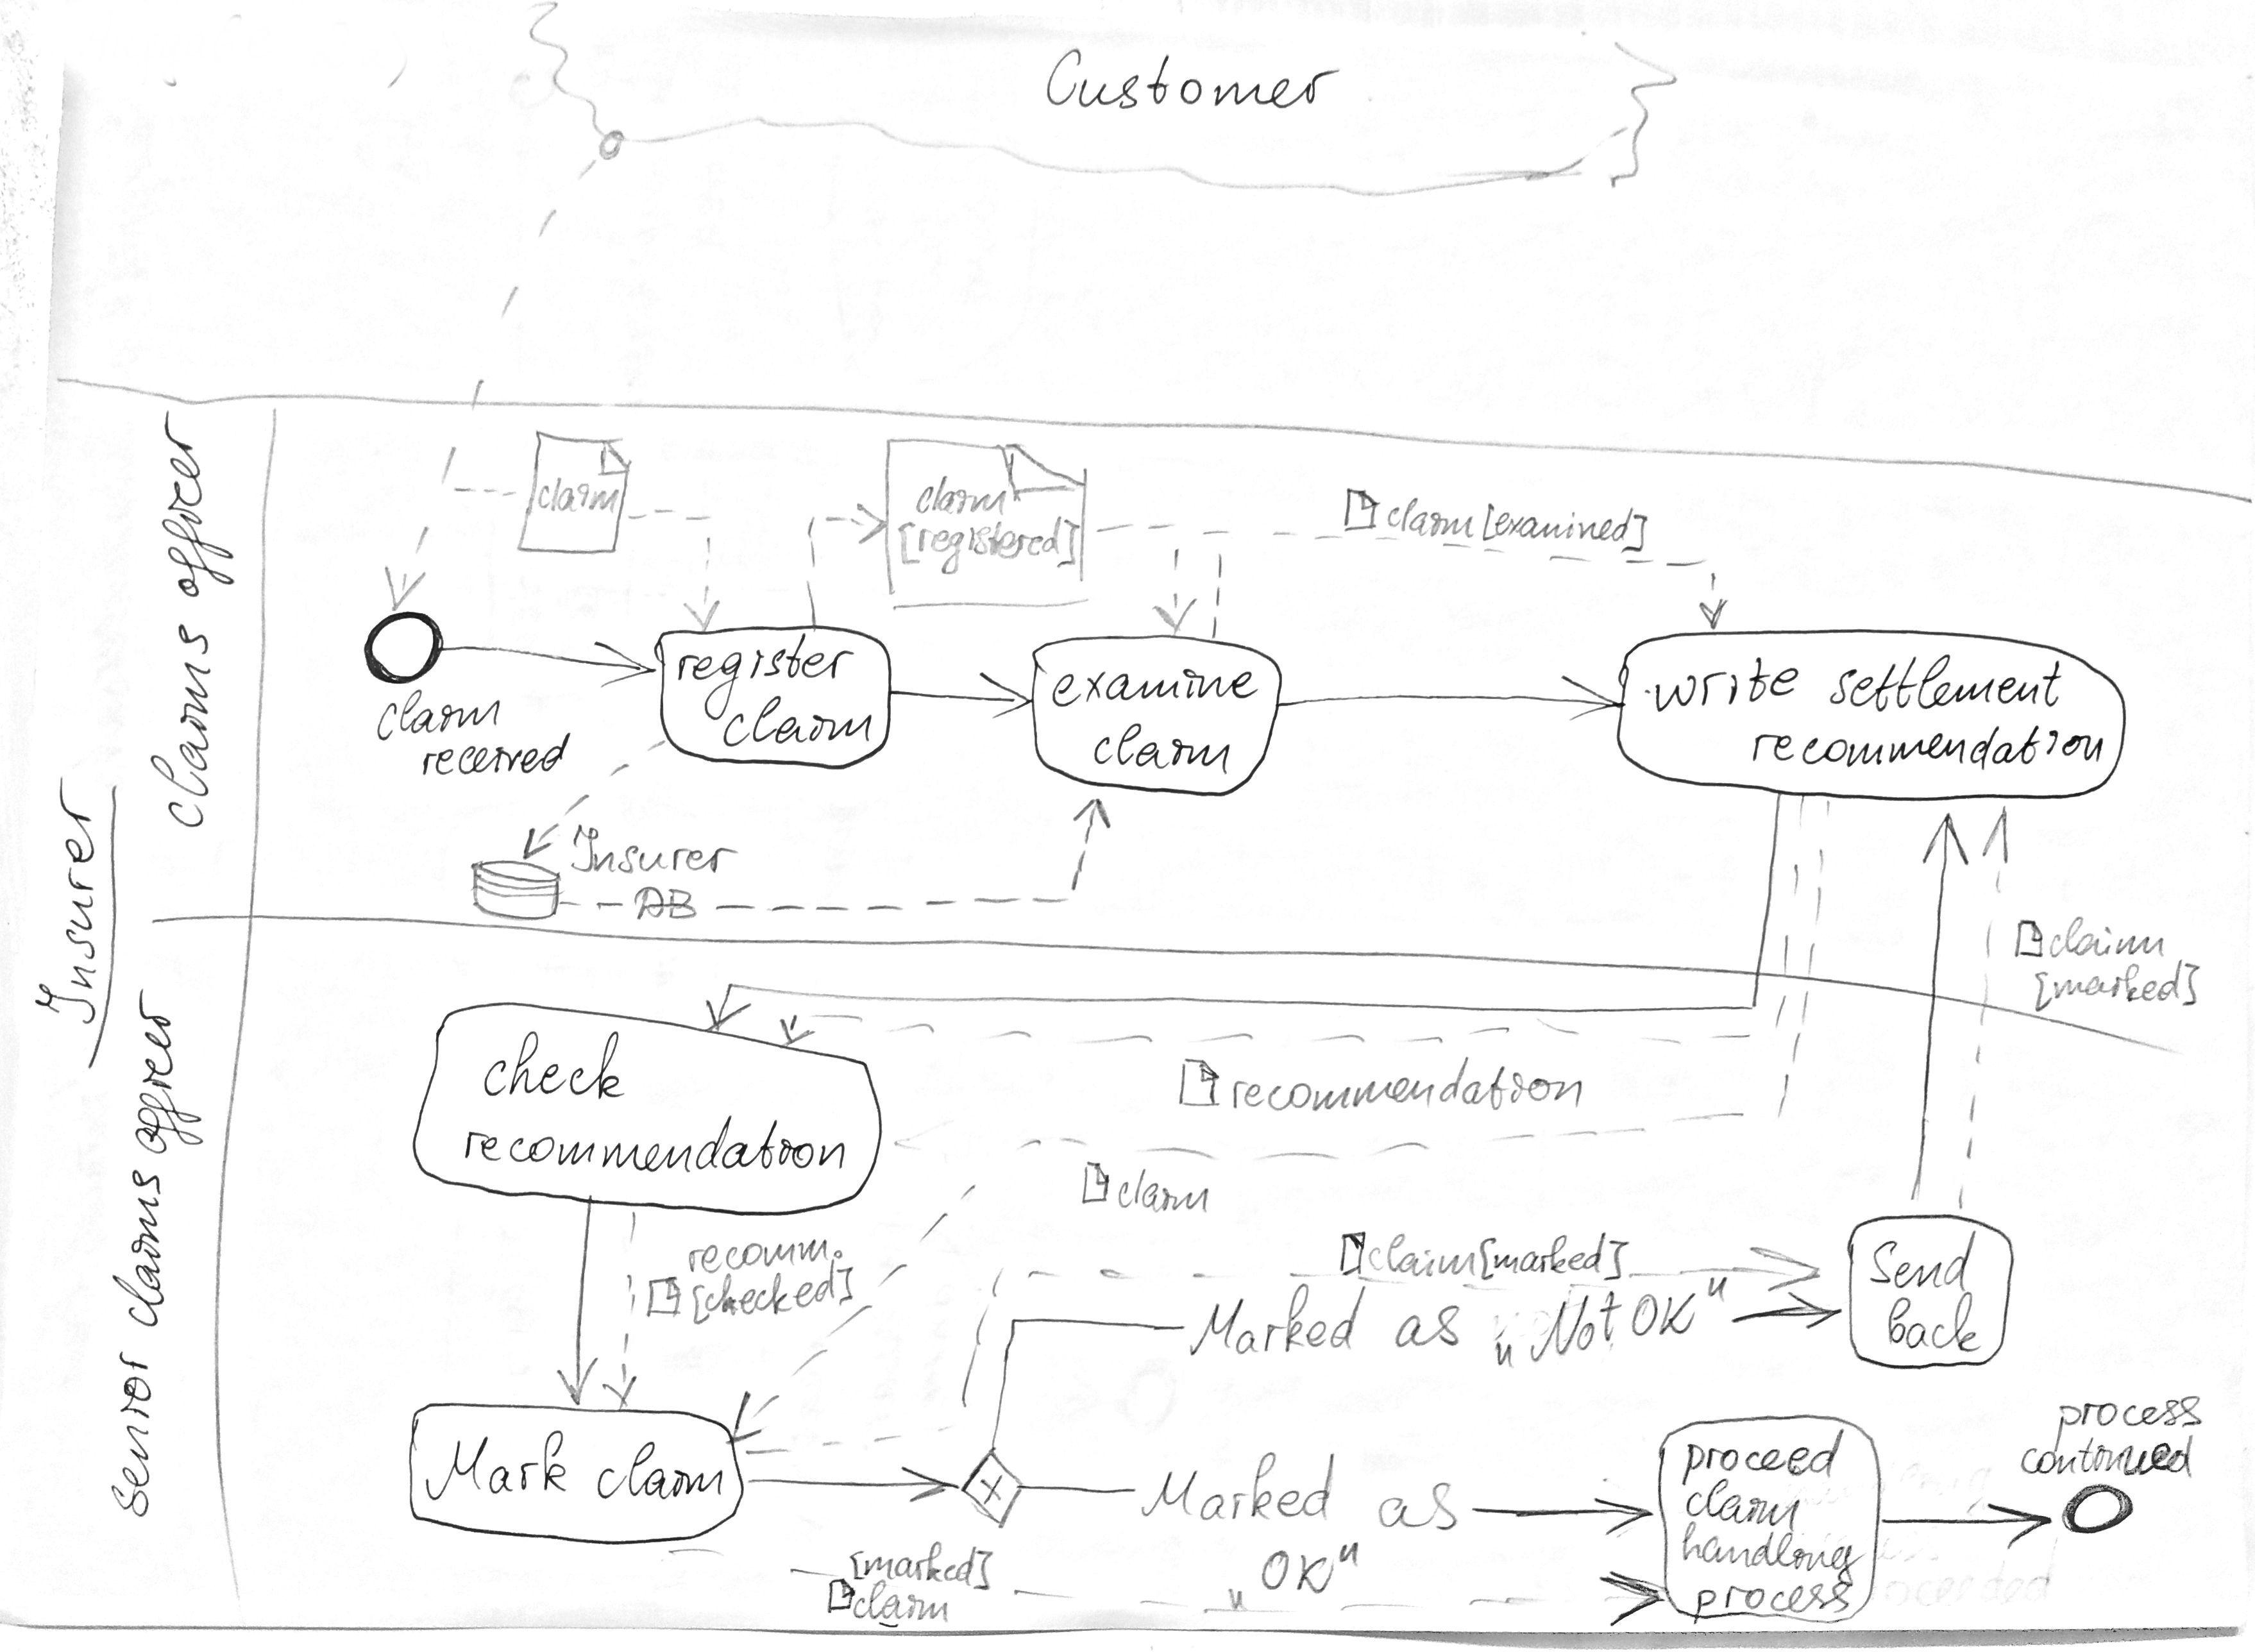 Customer
Insurer
claims officer
senior claims officer
claim
claim
[registered]
claim [examined]
claim
received
register
claim
examine
claim
write settlement
recommendation
Insurer
DB
claim
[marked]
check
recommendation
recommendation
claim
recomm.
[checked]
claim [marked]
Marked as „Not OK"
Send
back
Mark claim
Marked as
„OK"
proceed
claim
handling
process
process
continued
[marked]
claim